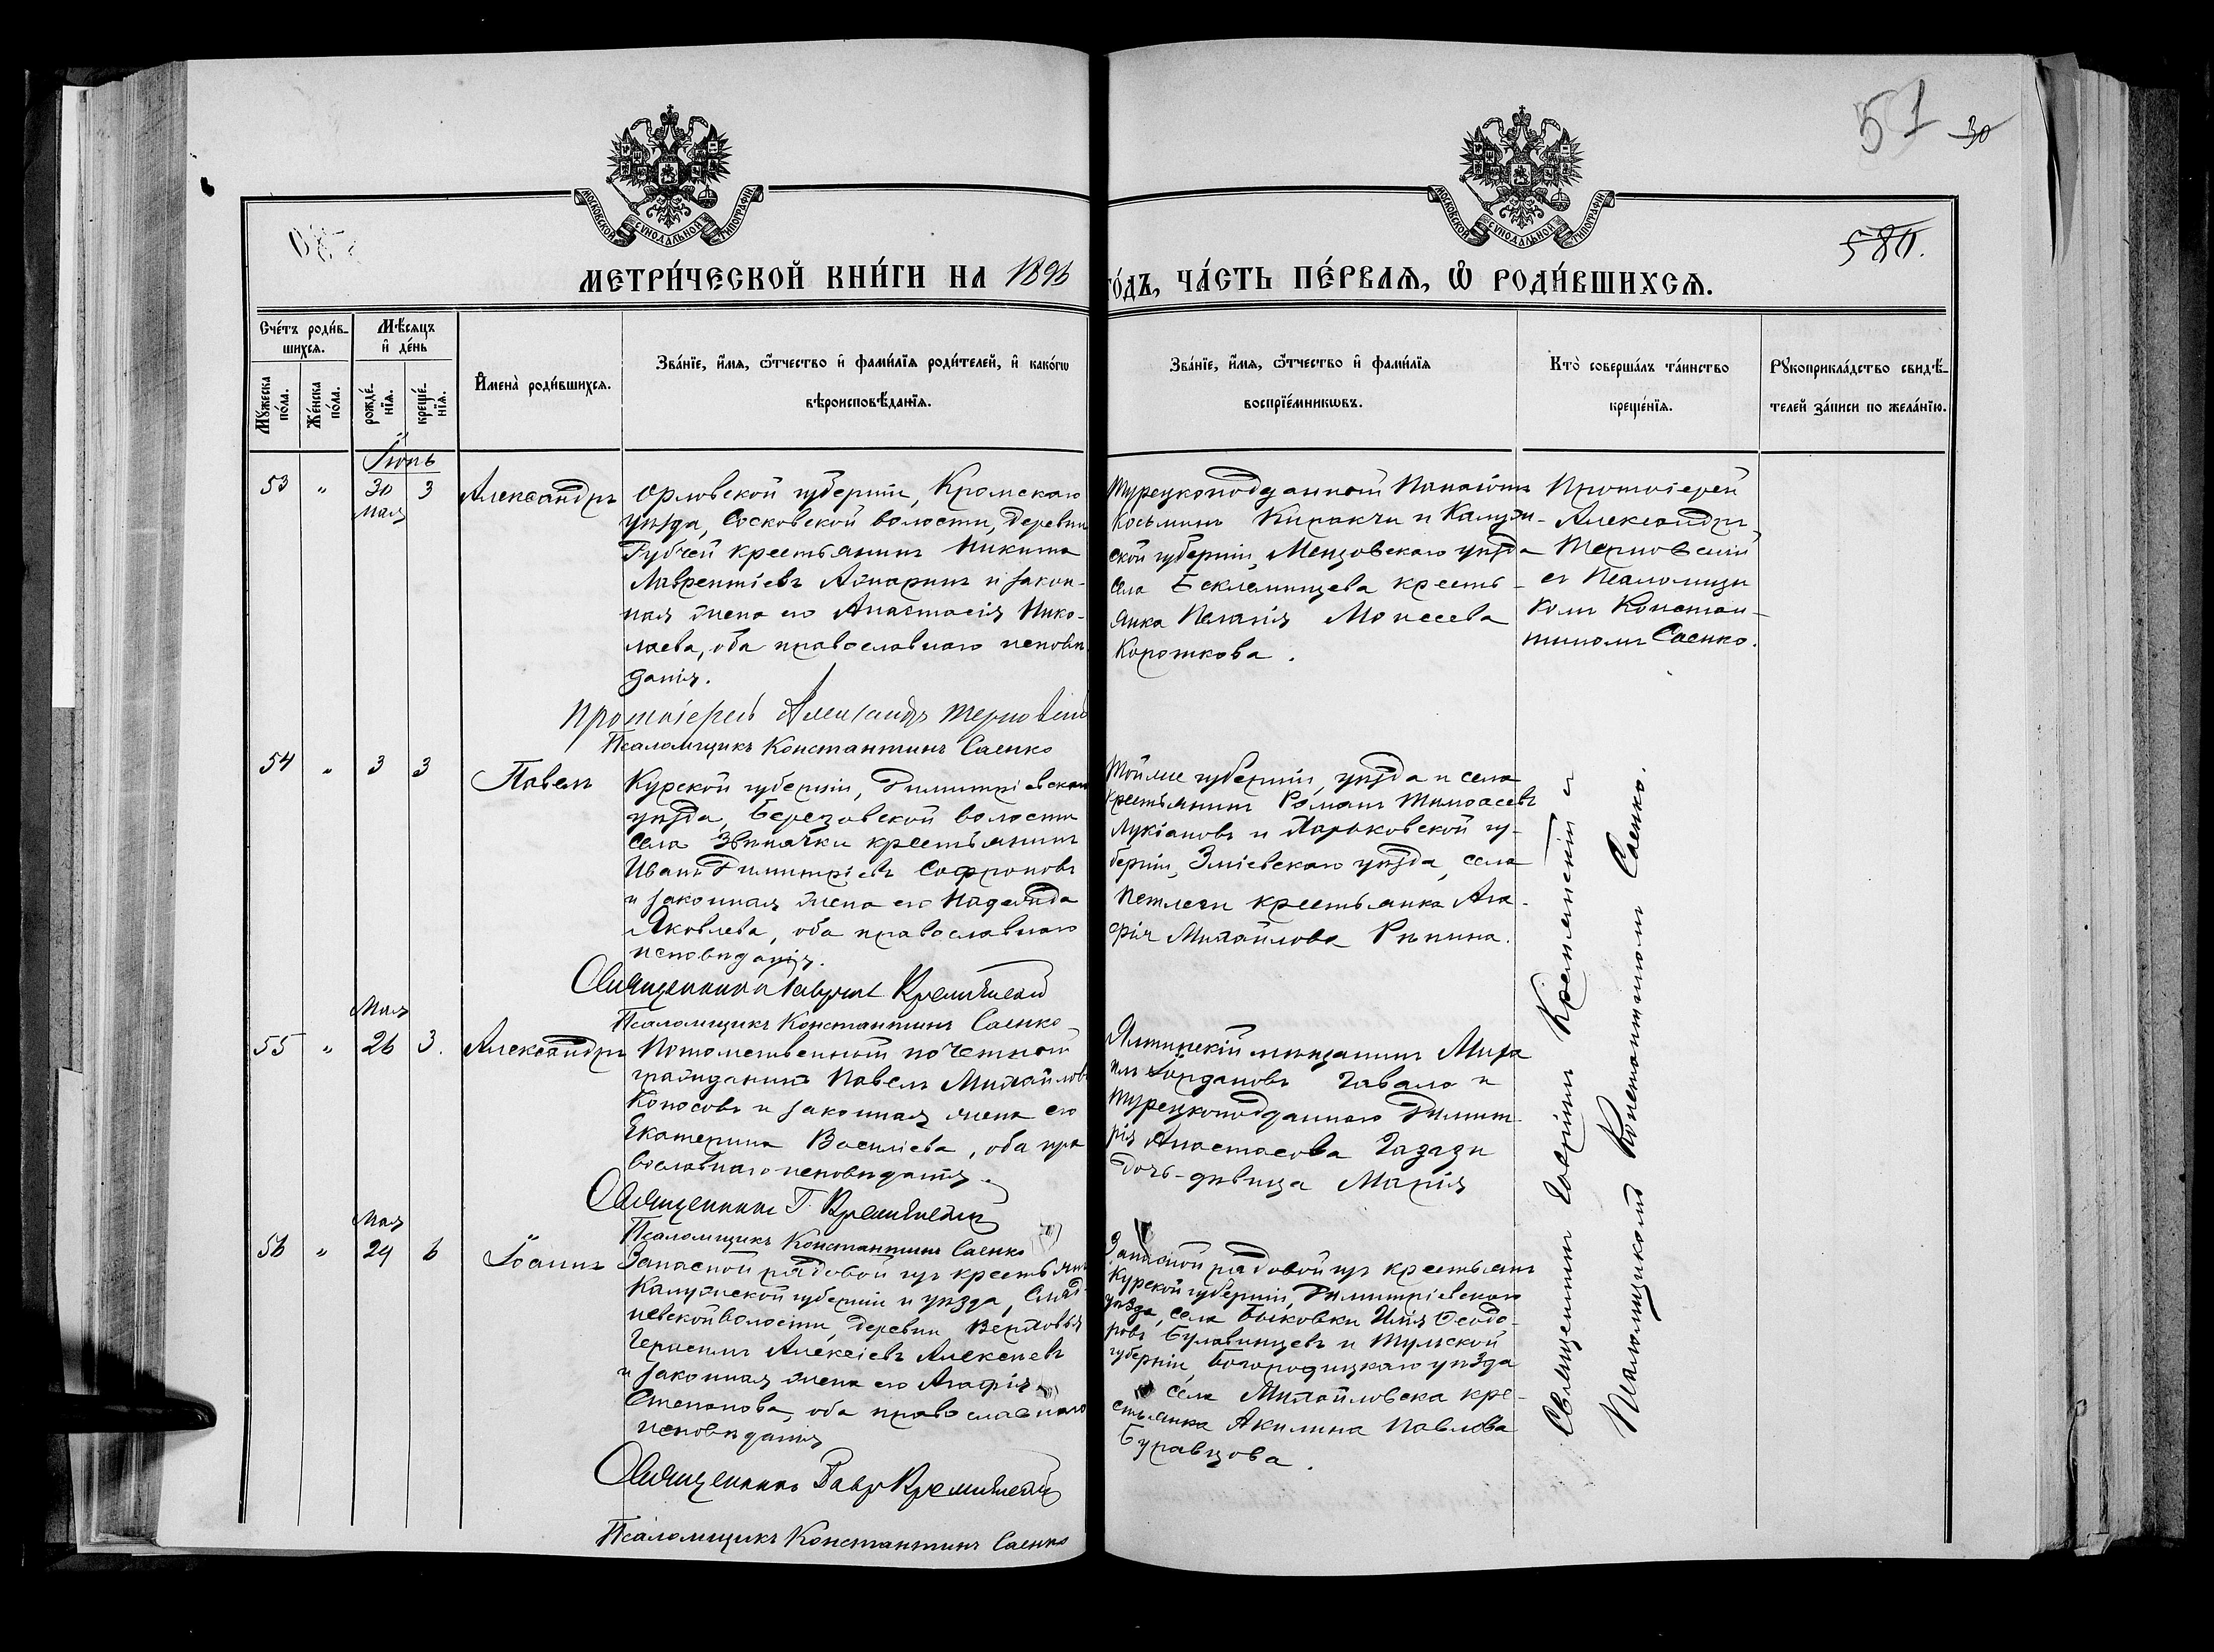 51 30
580.
МОСКОВСКОЙ СѴНОДАЛЬНОЙ ТИПОГРАФІИ
МОСКОВСКОЙ СѴНОДАЛЬНОЙ ТИПОГРАФІИ
МЕТРИ́ЧЕСКОЙ КНИ́ГИ НА 1896 ГО́ДЪ, ЧА́СТЬ ПЕ́РВАѦ, Ѽ РОДИ́ВШИХСѦ.
Сче́тъ роди́в-
шихсѧ.
Мѣ́сѧцъ
и҆ де́нь
Мꙋ́жеска
по́ла.
Же́нска
по́ла.
рожде́-
нїѧ.
креще́-
нїѧ.
И҆мена̀ роди́вшихсѧ.
Зва́нїе, и҆́мѧ, ѻ҆́тчество и҆ фами́лїѧ роди́телей, и҆ како́гѡ
вѣроисповѣ́данїѧ.
Зва́нїе, и҆́мѧ, ѻ҆́тчество и҆ фами́лїѧ
воспрїе́мникѡвъ.
Кто̀ соверша́лъ та́инство
креще́нїѧ.
Рꙋкоприкла́дство свидѣ́-
телей за́писи по жела́нїю.
Іюнь
53 " 30 3
мая
Александръ
Орловской губерніи, Кромскаго
уѣзда, Сосковской волости, деревни
Губчей крестьянинъ Никита
Лаврентіевъ и закон-
ная жена его Анастасія Нико-
лаева, оба православнаго исповѣ-
данія.
Протоіерей Александръ Терновскій
Псаломщикъ Константинъ Саенко
Турецкоподданный Панаіотъ
Косьминъ Киракчи и Калуж-
ской губерніи, Мещовскаго уѣзда
села Беклемищева кресть-
янка Пелагія Моисеева
Короткова.
Протоіерей
Александръ
Терновскій
съ Псаломщи
комъ Констан-
тиномъ Саенко.
54 " 3 3
Павелъ
Курской губерніи, Димитріевскаго
уѣзда, Березовской волости
села Звѣгачки крестьянинъ
Иванъ Димитріевъ Софроновъ
и законная жена его Надежда
Яковлева, оба православнаго
исповѣданія.
Священникъ Гавріилъ Кремянскій
Псаломщикъ Константинъ Саенко
Той же губерніи, уѣзда и села
крестьянинъ Романъ
Лукіановъ и Харьковской гу-
берніи, Зміевскаго уѣзда, села
крестьянка Ага-
фія Михайлова Рѣпина.
Священникъ Гавріилъ Кремянскій и
Псаломщикомъ Константиномъ Саенко.
Мая
55 " 26 3.
Александръ
Потомственный почетный
гражданинъ Павелъ Михайловъ
Коносовъ и законная жена его
Екатерина Василіева, оба пра
вославнаго исповѣданія.
Священникъ Г. Кремянскій
Псаломщикъ Константинъ Саенко
Ялтинскій мѣщанинъ Миха
илъ Іордановъ Чавало и
турецкоподданнаго Димит-
рія Анастасова Газази
дочь-дѣвица Марія
Мая
56 " 29 6
Іоаннъ
Запасной рядовой изъ крестьянъ
Калужской губерніи и уѣзда,
невской волости, деревни Верховья
Герасимъ Алексіевъ Алексѣевъ
и законная жена его Агафія
Степанова, оба православнаго
исповѣданія
Священникъ Гавр Кремянскій
Псаломщикъ Константинъ Саенко
Запасной рядовой изъ крестьянъ
Курской губерніи, Димитріевскаго
уѣзда, села Быковки Илія Ѳеодо-
ровъ Булавинцевъ и Тульской
губерніи, Богородицкаго уѣзда
села Михайловска кре-
стьянка Акилина Павлова
Буравцова.